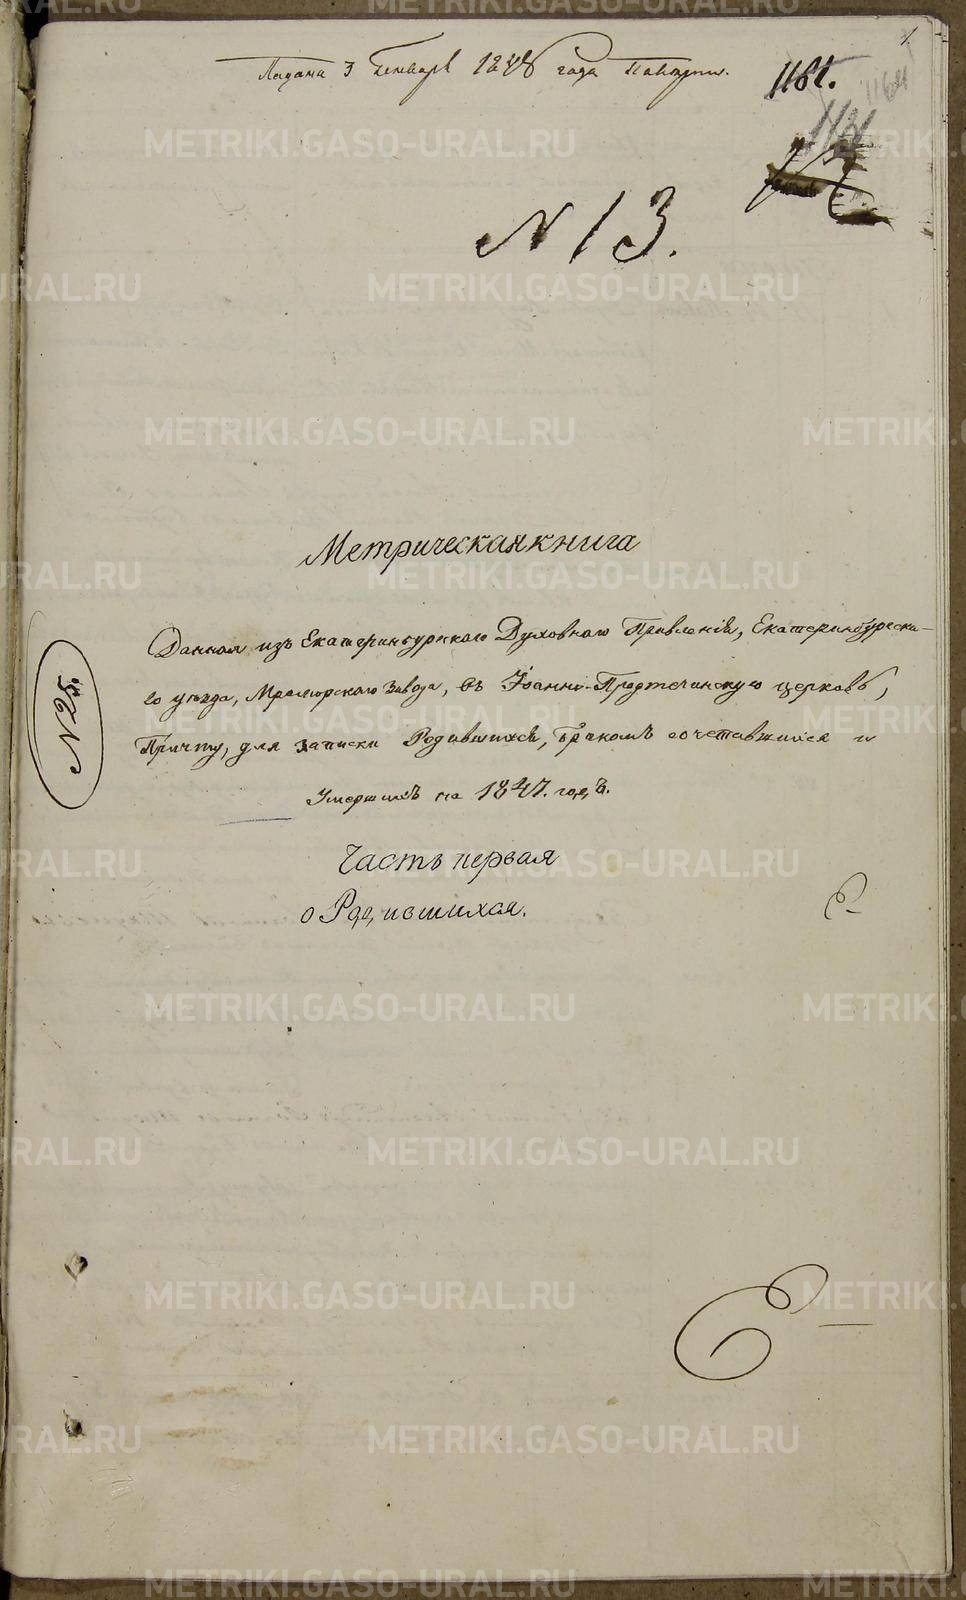 Подана 3 Генваря 1848 года
1181.
1164
N 13.
Метрическая книга
Данная изъ Екатеринбургскаго Духовнаго Правленія, Екатеринбургска-
го уѣзда, Мраморскаго завода, въ Іоанно-Предтечинскую церковь,
Причту, для записки Родившихся, бракомъ сочетавшихся и
Умершихъ на 1847. годъ.
Часть первая
о Родившихся.
METRIKI.GASO-URAL.RU